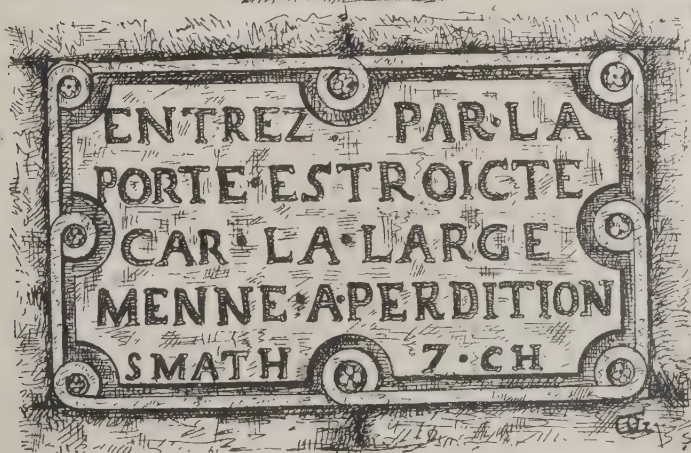 ENTREZ · PAR·LA
PORTE·ESTROICTE
CAR·LA·LARGE
MENNE·A·PERDITION
SMATH 7·CH